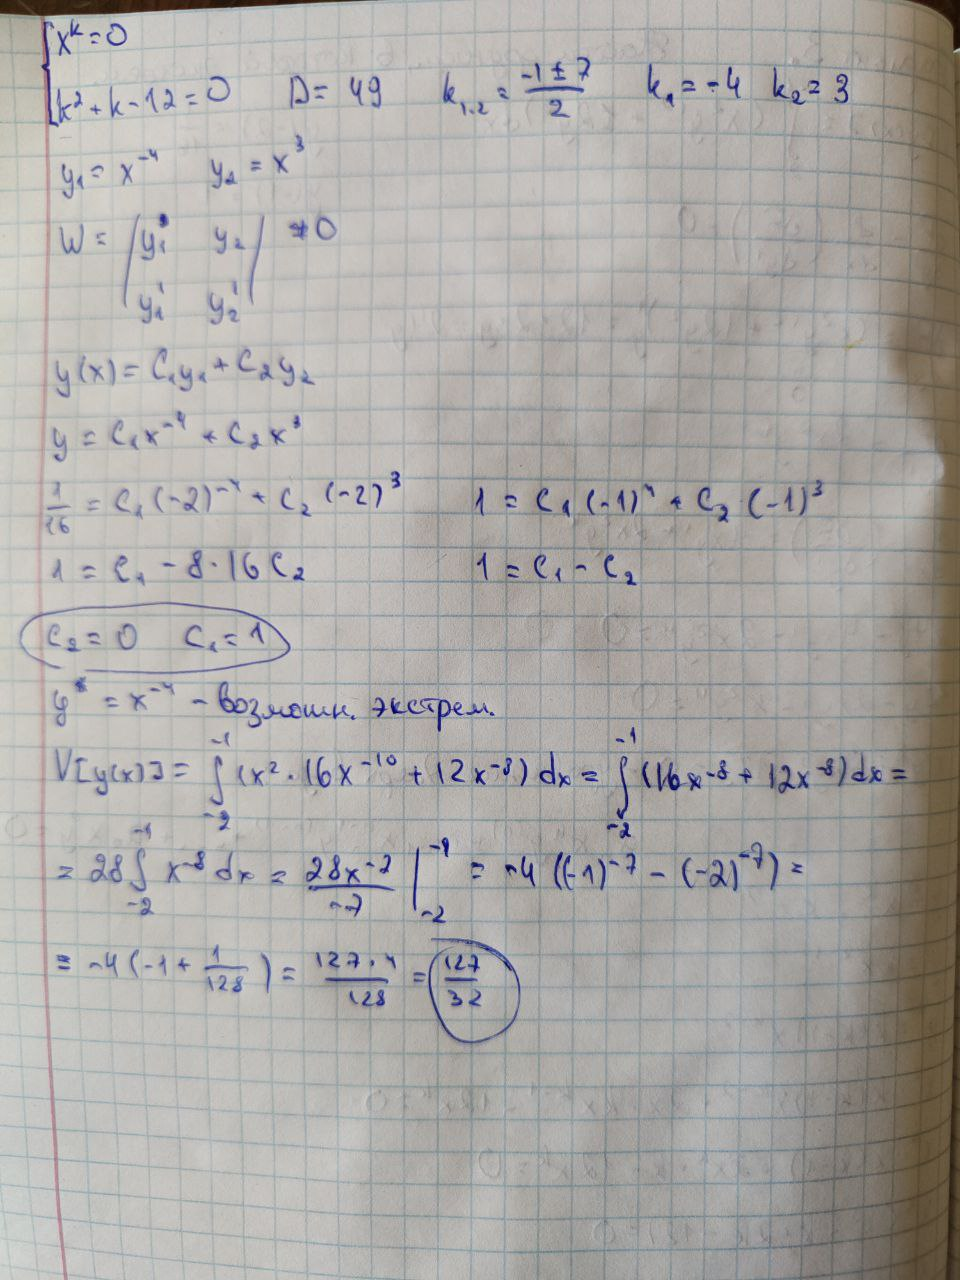 x^k = 0
k² + k - 12 = 0 D = 49 k₁,₂ = (-1 ± 7)/2 k₁ = -4 k₂ = 3
y₁ = x⁻⁴ y₂ = x³
W = | y₁ y₂ | ≠ 0
y₁' y₂'
y(x) = C₁y₁ + C₂y₂
y = C₁x⁻⁴ + C₂x³
1/16 = C₁(-2)⁻⁴ + C₂(-2)³ 1 = C₁(-1)⁴ + C₂·(-1)³
1 = C₁ - 8·16C₂ 1 = C₁ - C₂
C₂ = 0 C₁ = 1
y* = x⁻⁴ - возможн. экстрем.
V[y(x)] = ∫₋₂⁻¹ (x²·16x⁻¹⁰ + 12x⁻⁸)dx = ∫₋₂⁻¹ (16x⁻⁸ + 12x⁻⁸)dx =
= 28∫₋₂⁻¹ x⁻⁸dx = 28x⁻⁷/-7 |₋₂⁻¹ = -4((-1)⁻⁷ - (-2)⁻⁷) =
= -4(-1 + 1/128) = 127·4/128 = 127/32